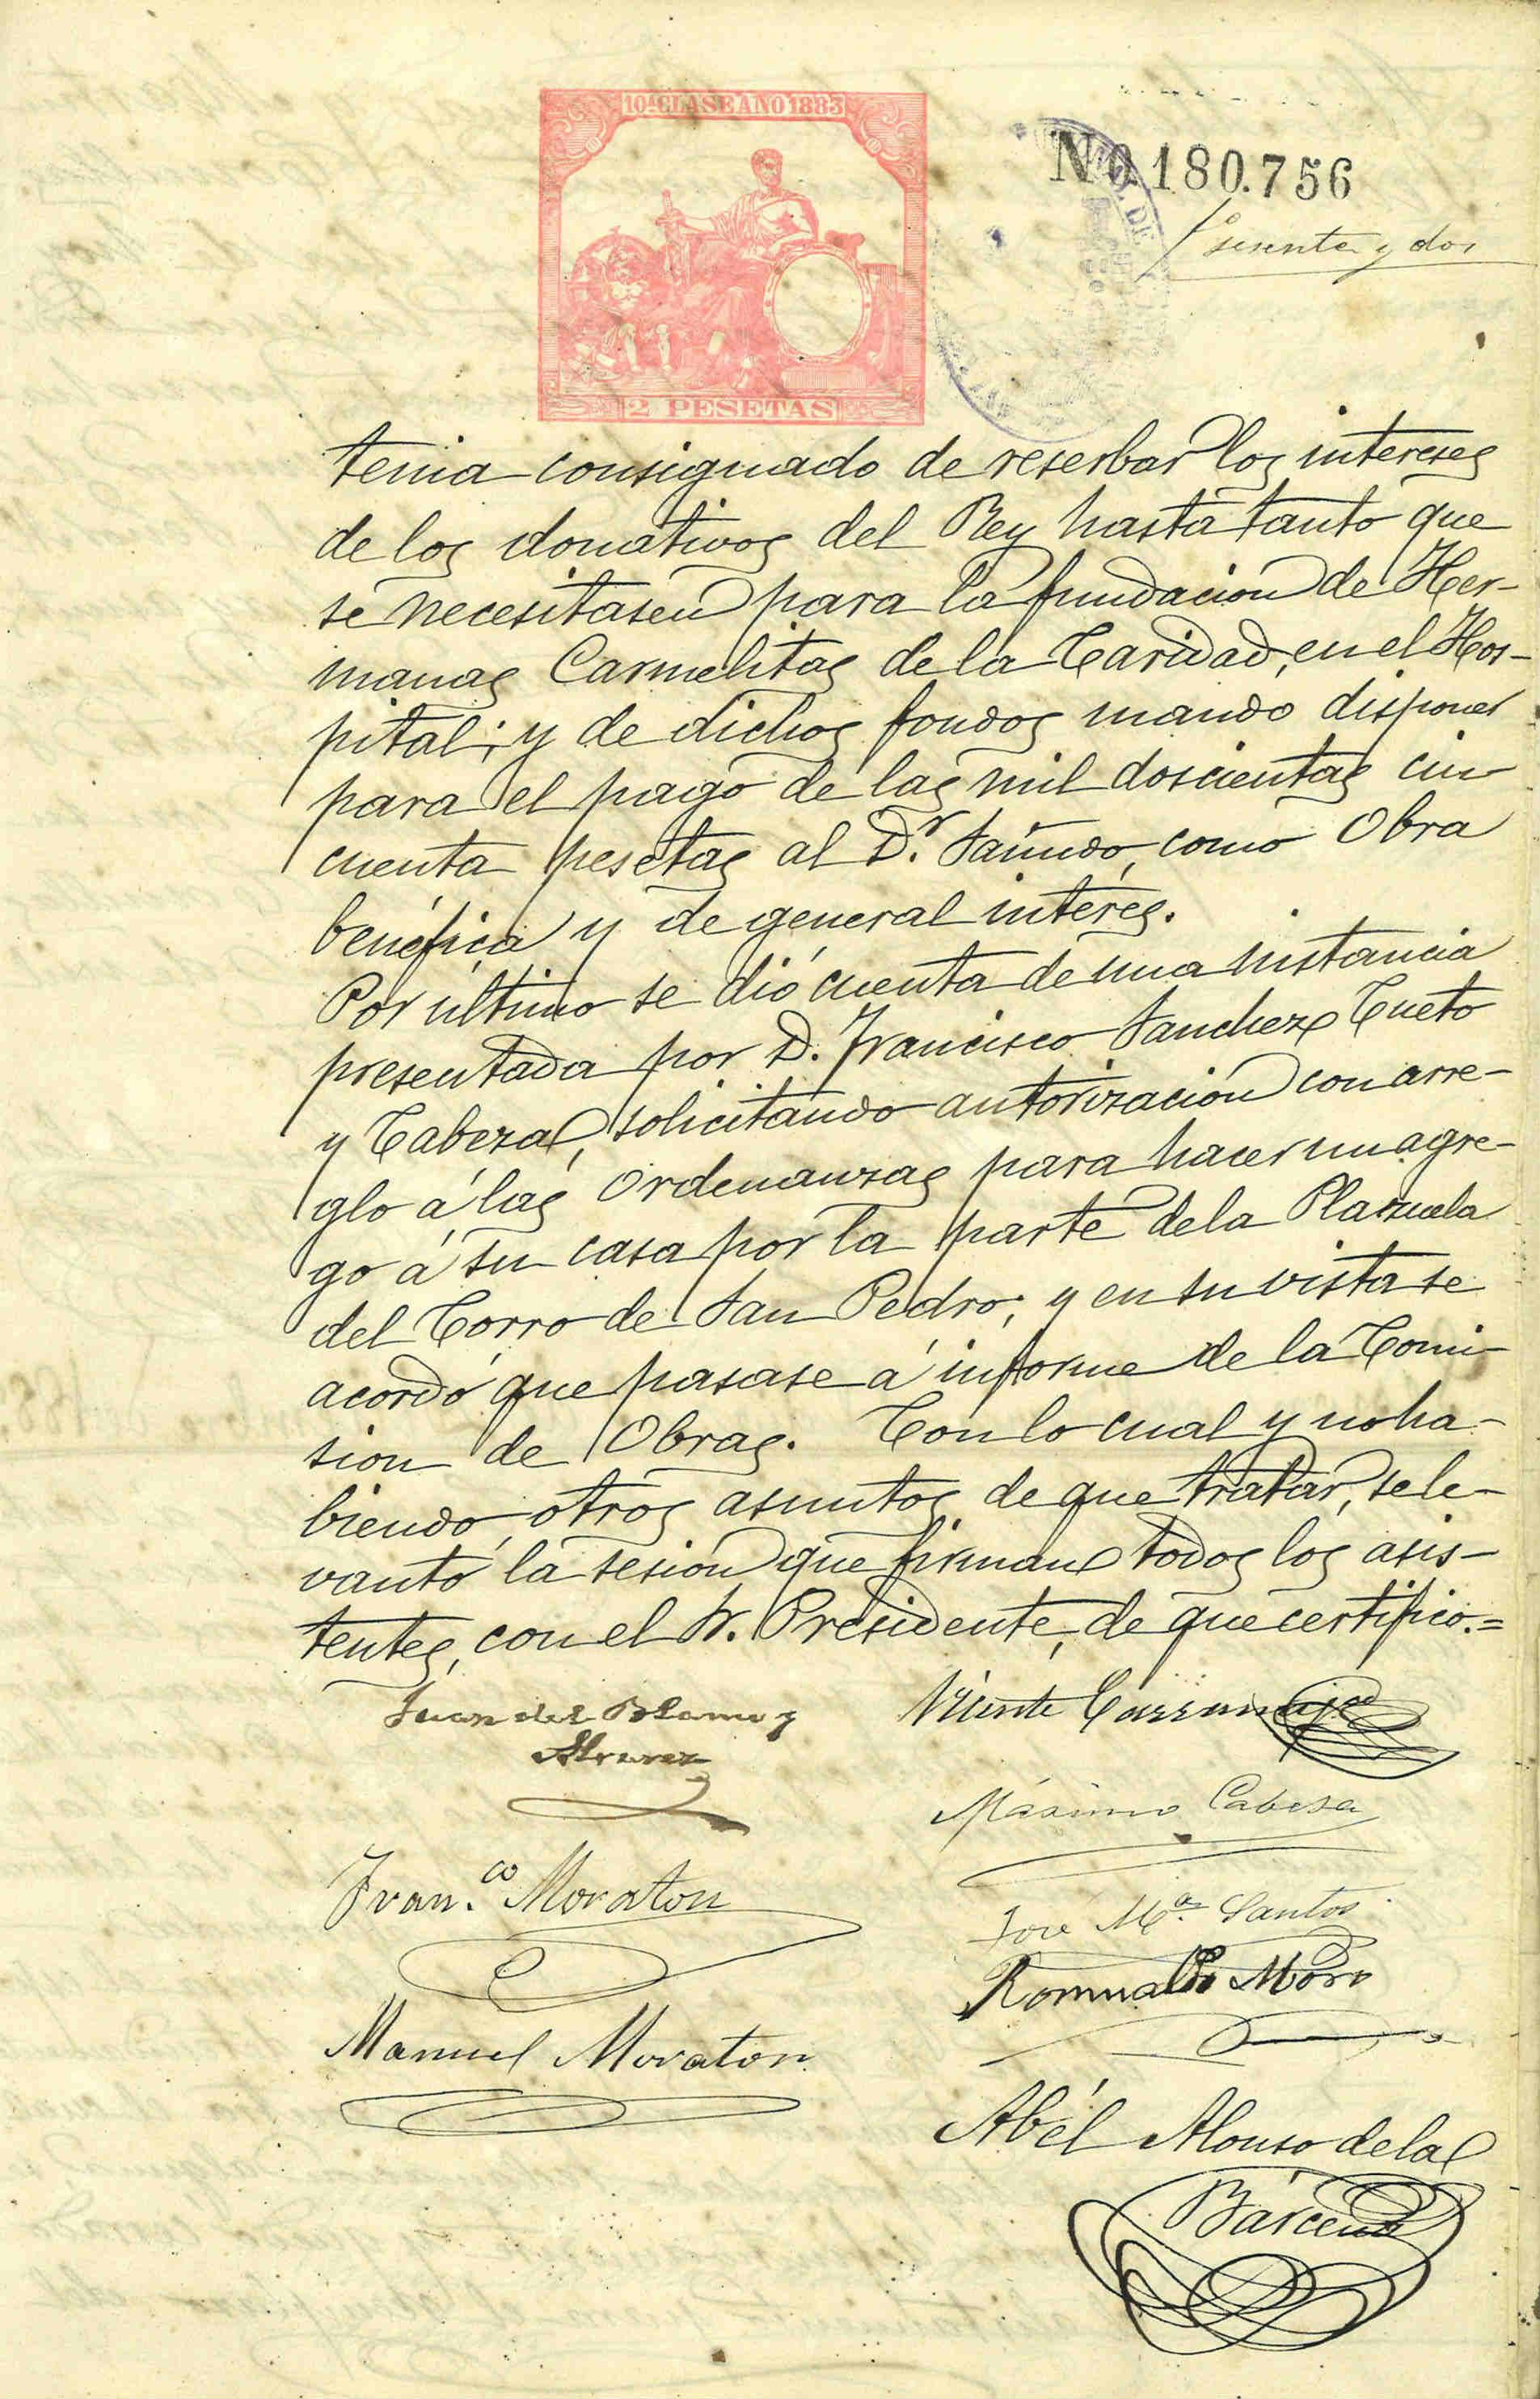 10ª CLASE AÑO 1883
N 0.180.756
fº sesenta y dos
2 PESETAS
tenia consignado de reserbar los intereses
de los donativos del Rey hasta tanto que
se necesitasen para la fundacion de Her-
manas Carmelitas de la Caridad, en el Hos-
pital; y de dichos fondos mando disponer
para el pago de las mil doscientas cin
cuenta pesetas al D.r Sañudo, como Obra
benéfica y de general interés.
Por último se dió cuenta de una instancia
presentada por D. Francisco Sanchez Cueto
y Cabeza, solicitando autorizacion con arre-
glo á las Ordenanzas para hacer un agre-
go á su casa por la parte de la Plazuela
del Corro de San Pedro; y en su vista se
acordó que pasase á informe de la Comi-
sion de Obras. Con lo cual y no ha-
biendo otros asuntos de que tratar, se le-
vantó la sesion que firman todos los asis-
tentes, con el Sr. Presidente, de que certifico.=
Juan del Blanco y
Alvarez
Vicente
Máximo Cabeza
Fran.co Moraton
Jose M.a Santos
Romualdo Moro
Manuel Moraton
Abél Alonso de la
Bárcena